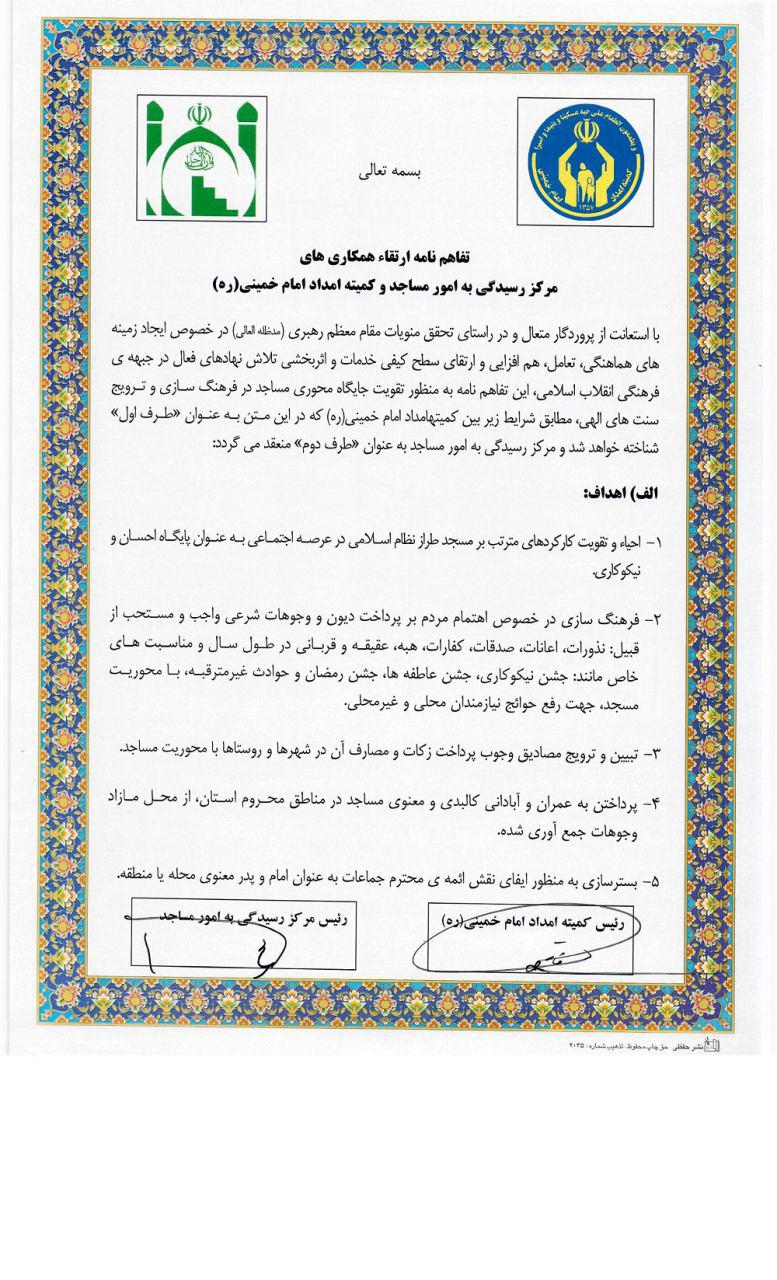 و یطعمون الطعام علی حبه مسکینا و یتیما و اسیرا
کمیته امداد امام خمینی
۱۳۵۷
بسمه تعالی
تفاهم نامه ارتقاء همکاری های
مرکز رسیدگی به امور مساجد و کمیته امداد امام خمینی(ره)
با استعانت از پروردگار متعال و در راستای تحقق منویات مقام معظم رهبری (مدظله العالی) در خصوص ایجاد زمینه
های هماهنگی، تعامل، هم افزایی و ارتقای سطح کیفی خدمات و اثربخشی تلاش نهادهای فعال در جبهه ی
فرهنگی انقلاب اسلامی، این تفاهم نامه به منظور تقویت جایگاه محوری مساجد در فرهنگ سازی و ترویج
سنت های الهی، مطابق شرایط زیر بین کمیتهامداد امام خمینی(ره) که در این متن به عنوان «طرف اول»
شناخته خواهد شد و مرکز رسیدگی به امور مساجد به عنوان «طرف دوم» منعقد می گردد:
الف) اهداف:
۱- احیاء و تقویت کارکردهای مترتب بر مسجد طراز نظام اسلامی در عرصه اجتماعی به عنوان پایگاه احسان و
نیکوکاری.
۲- فرهنگ سازی در خصوص اهتمام مردم بر پرداخت دیون و وجوهات شرعی واجب و مستحب از
قبیل: نذورات، اعانات، صدقات، کفارات، هبه، عقیقه و قربانی در طول سال و مناسبت های
خاص مانند: جشن نیکوکاری، جشن عاطفه ها، جشن رمضان و حوادث غیرمترقبه، با محوریت
مسجد، جهت رفع حوائج نیازمندان محلی و غیرمحلی.
۳- تبیین و ترویج مصادیق وجوب پرداخت زکات و مصارف آن در شهرها و روستاها با محوریت مساجد.
۴- پرداختن به عمران و آبادانی کالبدی و معنوی مساجد در مناطق محروم استان، از محل مازاد
وجوهات جمع آوری شده.
۵- بسترسازی به منظور ایفای نقش ائمه ی محترم جماعات به عنوان امام و پدر معنوی محله یا منطقه.
رئیس کمیته امداد امام خمینی(ره)
رئیس مرکز رسیدگی به امور مساجد
نشر حفظی حق چاپ محفوظ. تذهیب شماره: ۲۰۳۵